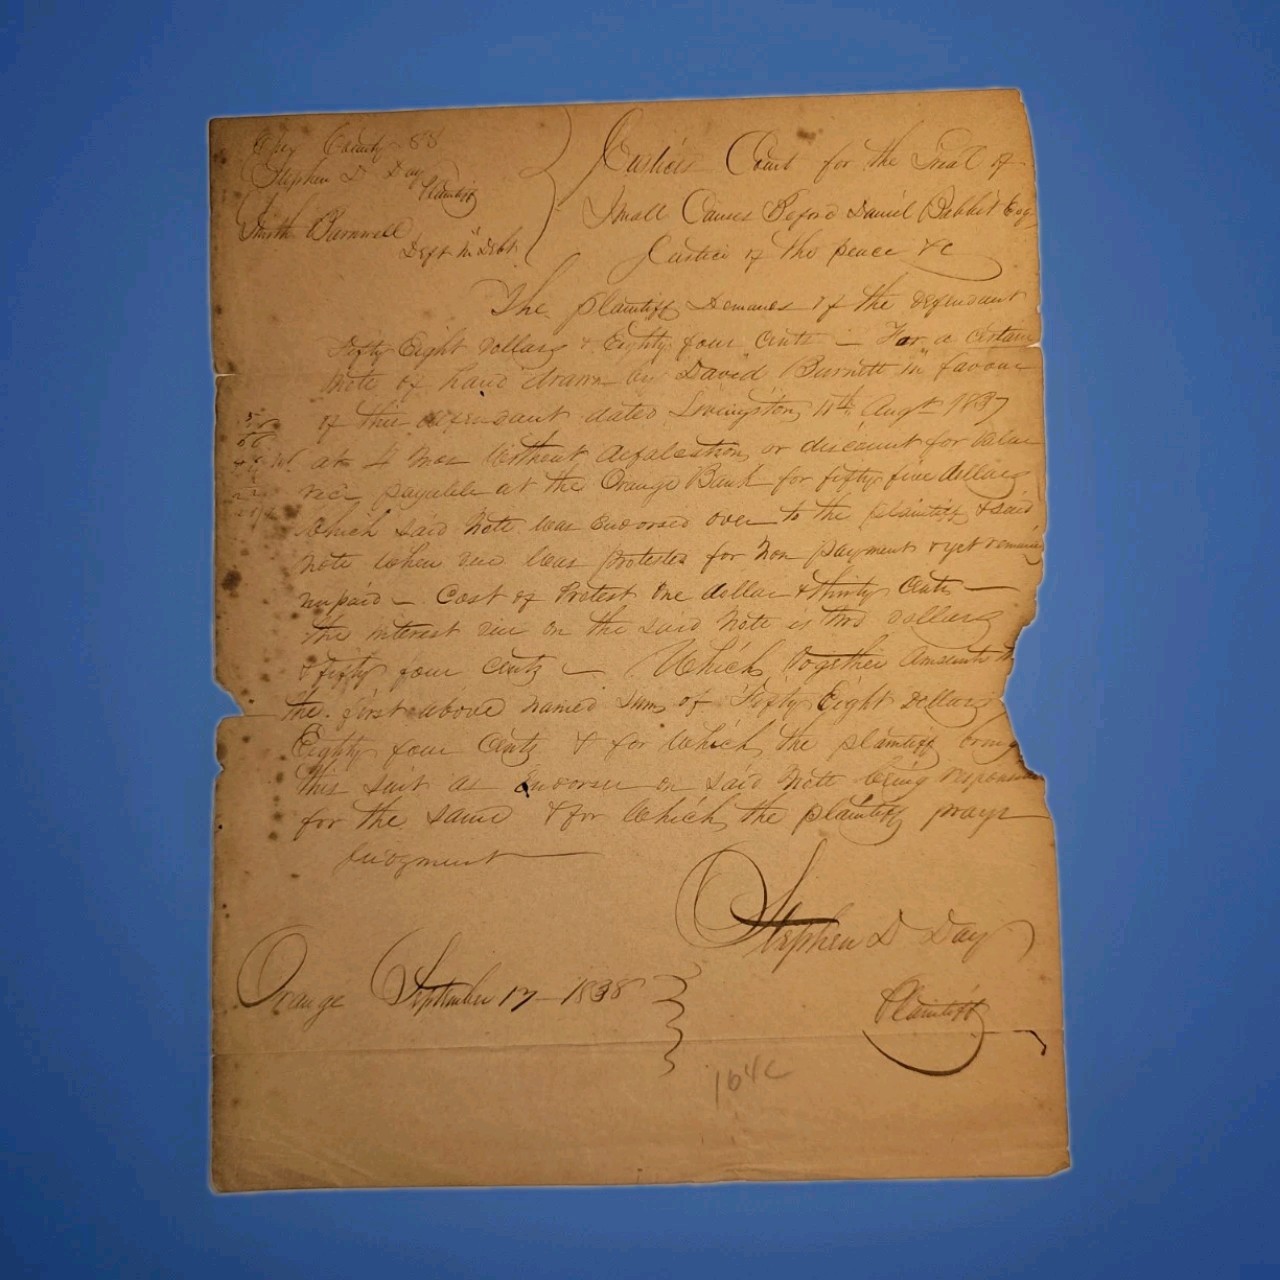 Essex County SS
Stephen D Day
Plaintiff
Smith Burnwell
Deft In Debt
Justices Court for the Treal of
Small Causes Before Daniel Babbit Esq
Justice of the peace &c
The plaintiff Demands of the defendant
Fifty Eight Dollars & Eighty four Cents — For a Certain
Note of hand drawn by David Burnett in favour
of the defendant dated Livingston 4th Augt 1837
at 4 mos Without defalcation or discount for value
recd payable at the Orange Bank for fifty five dollars
which said Note was Endorsed over to the plaintiff & said
Note when due was protested for Non payment & yet remains
unpaid — Cost of Protest One dollar & thirty Cents —
The interest due on the said Note is two dollars
& fifty four Cents — Which together Amounts to
the first above named sum of Fifty Eight Dollars
Eighty four Cents & for which the plaintiff brings
this suit as Endorser on said Note being responsible
for the same & for Which the plaintiff prays
Judgment
Stephen D Day
Plaintiff
Orange September 17 — 1838